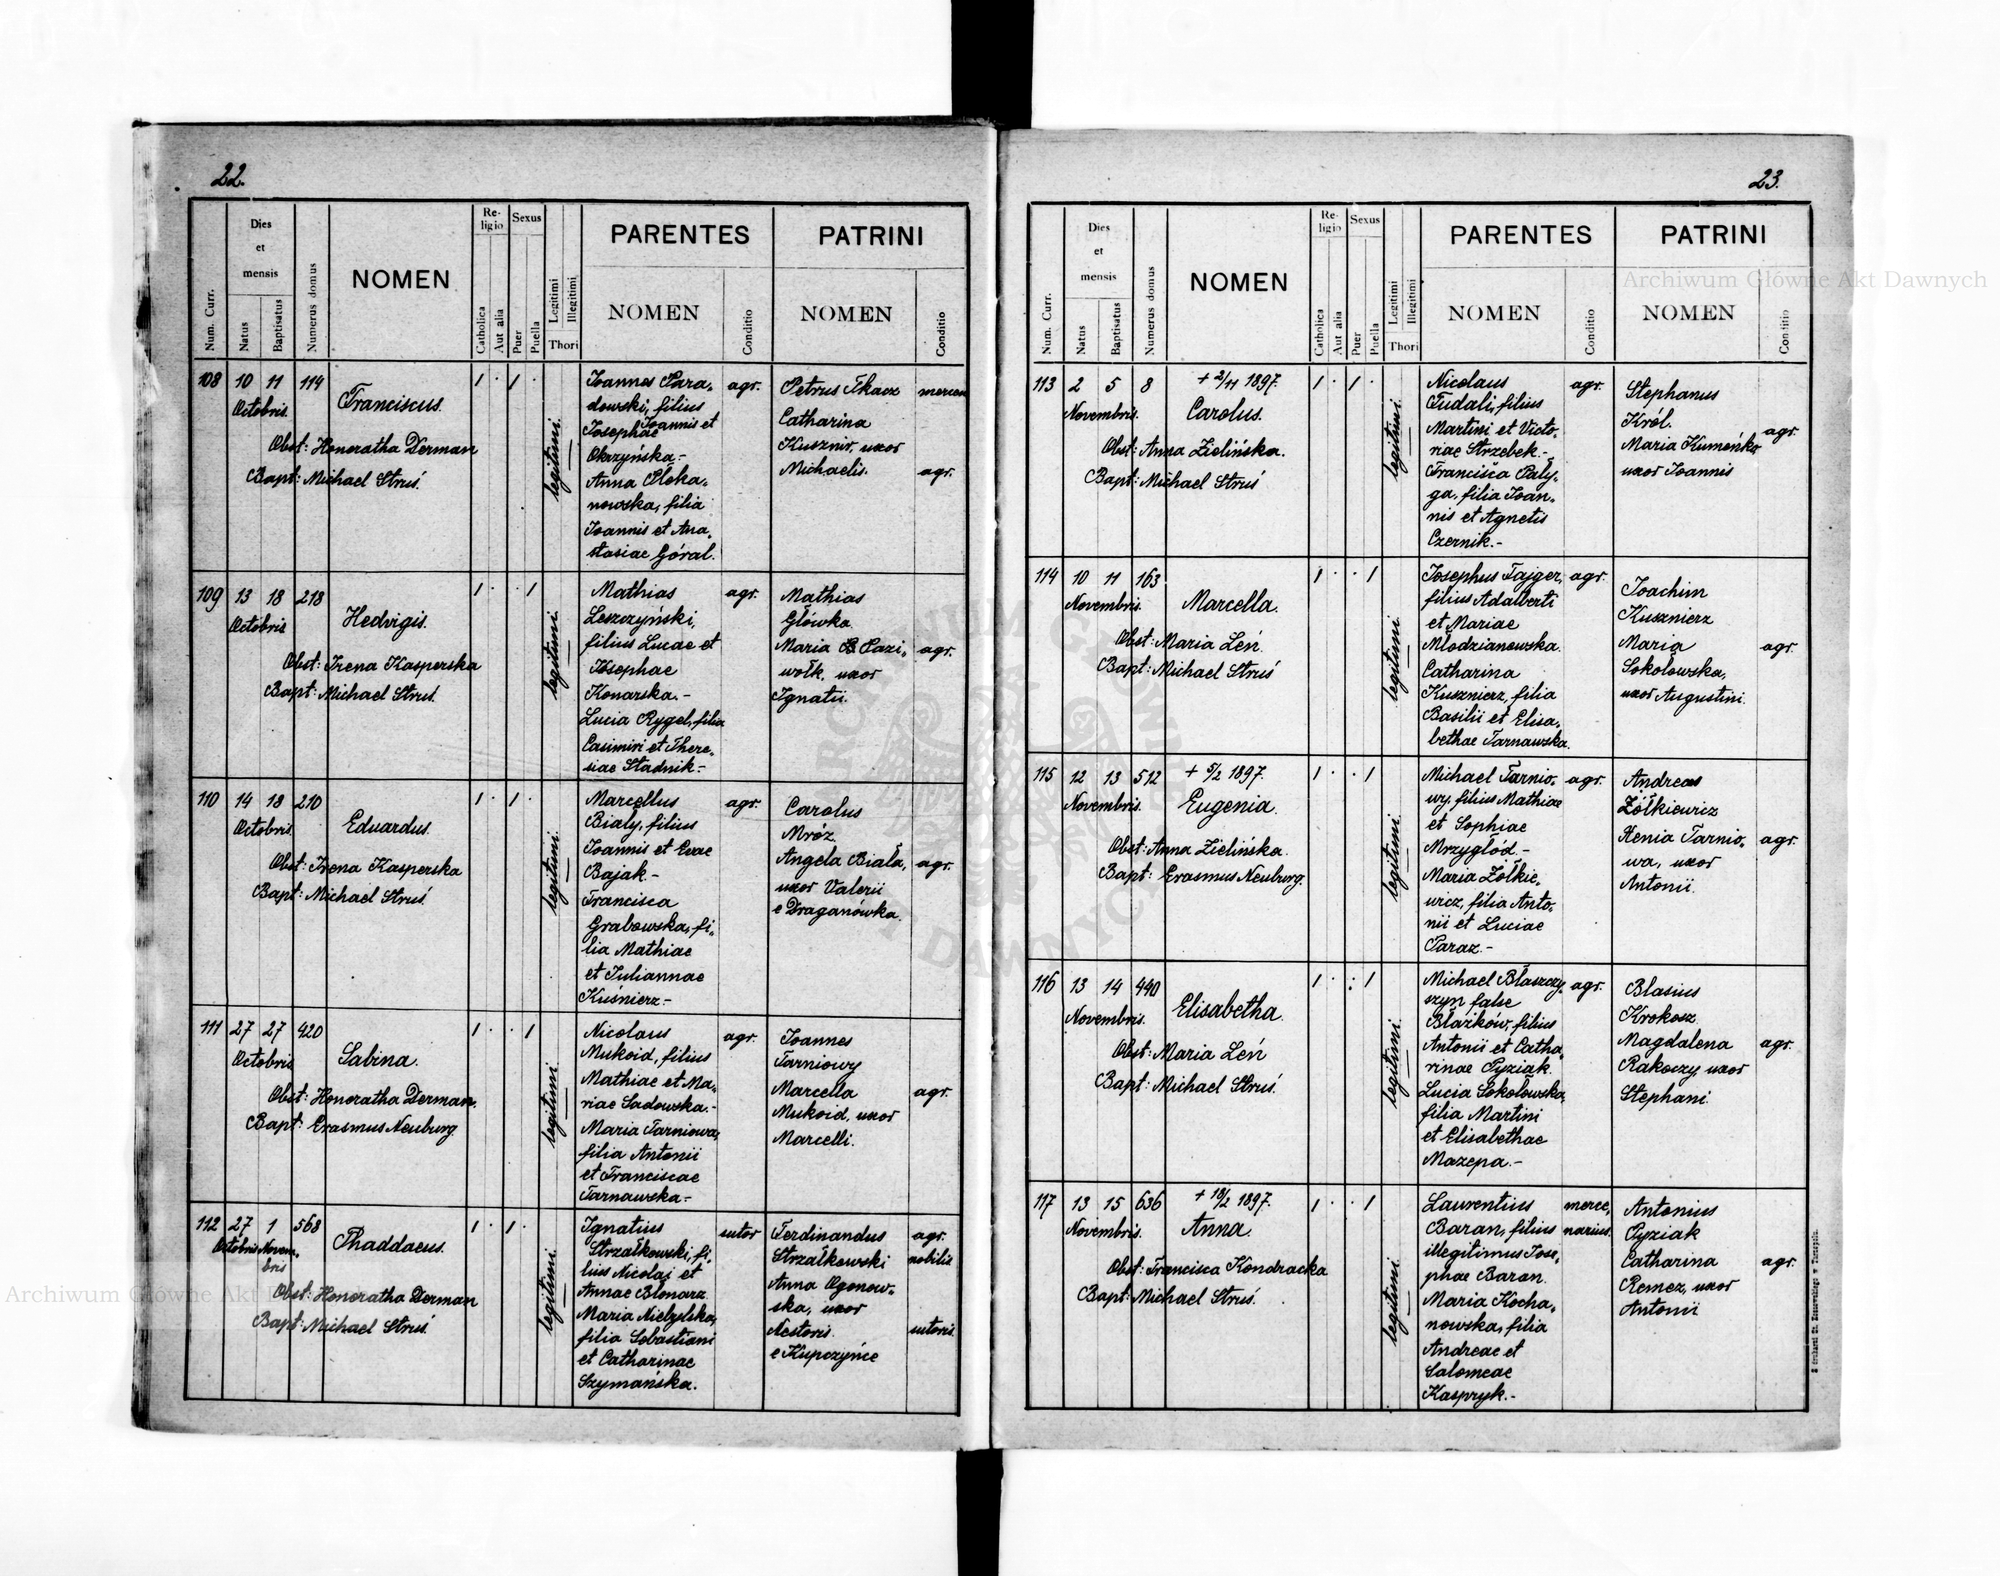 22.
Num. Curr.
Dies
et
mensis
Natus
Baptisatus
Numerus domus
NOMEN
Re-
ligio
Catholica
Aut alia
Sexus
Puer
Puella
Legitimi
Illegitimi
Thori
PARENTES
NOMEN
Conditio
PATRINI
NOMEN
Conditio
108 10 11 114
Octobris.
Franciscus.
Obst: Honoratha Derman
Bapt: Michael Struś
legitimi.
Joannes Para-
dowski, filius
Joannis et
Josephae
Okrzyńska.-
Anna Pleka-
nowska, filia
Joannis et Ana-
stasiae Góral.
agr.
Petrus Tkacz
Catharina
Kusznir, uxor
Michaelis.
mercen
agr.
109 13 18 218
Octobris
Hedvigis.
Obst: Irena Kasperska
Bapt: Michael Struś.
legitimi.
Mathias
Leszczyński,
filius Lucae et
Josephae
Konarska.-
Lucia Rygel, filia
Casimiri et There-
siae Stadnik.-
agr.
Mathias
Główka
Maria Pazi-
wołk, uxor
Ignatii.
agr.
110 14 18 210
Octobris.
Eduardus.
Obst: Irena Kasperska
Bapt: Michael Struś.
legitimi.
Marcellus
Biały, filius
Joannis et Evae
Bajak.-
Francisca
Grabowska, fi-
lia Mathiae
et Juliannae
Kuśnierz.-
agr.
Carolus
Mróz
Angela Biała,
uxor Valerii
e Draganówka.
agr.
111 27 27 420
Octobris
Sabina.
Obst: Honoratha Derman.
Bapt: Erasmus Neuburg.
legitimi.
Nicolaus
Mukoid, filius
Mathiae et Ma-
riae Sadowska.-
Maria Tarniowa,
filia Antonii
et Franciscae
Tarnawska.-
agr.
Joannes
Tarniowy
Marcella
Mukoid, uxor
Marcelli.
agr.
112 27 1 568
Octobris Novem-
bris
Thaddaeus.
Obst: Honoratha Derman
Bapt: Michael Struś.
legitimi.
Ignatius
Strzałkowski, fi-
lius Nicolai et
Annae Blonarz.
Maria Nielzylska,
filia Sebastiani
et Catharinae
Szymańska.
sutor
Ferdinandus
Strzałkowski
Anna Ogonow-
ska, uxor
Nestoris.
e Kupczyńce
agr.
nobilis
sutoris.
23.
Num. Curr.
Dies
et
mensis
Natus
Baptisatus
Numerus domus
NOMEN
Re-
ligio
Catholica
Aut alia
Sexus
Puer
Puella
Legitimi
Illegitimi
Thori
PARENTES
NOMEN
Conditio
PATRINI
NOMEN
Conditio
113 2 5 8
Novembris.
+ 2/11 1897.
Carolus.
Obst: Anna Zielińska.
Bapt: Michael Struś
legitimi.
Nicolaus
Fudali, filius
Martini et Victo-
riae Strzebek.-
Francisca Pały-
ga, filia Joan-
nis et Agnetis
Czernik.-
agr.
Stephanus
Król.
Maria Kumeńko
uxor Joannis
agr.
114 10 11 163
Novembris.
Marcella.
Obst: Maria Leń.
Bapt: Michael Struś
legitimi.
Josephus Fajger,
filius Adalberti
et Mariae
Młodzianowska.
Catharina
Kusznierz, filia
Basilii et Elisa-
bethae Tarnawska.
agr.
Joachim
Kusznierz
Maria
Sokołowska,
uxor Augustini.
agr.
115 12 13 512
Novembris.
+ 5/2 1897.
Eugenia.
Obst: Anna Zielińska
Bapt: Erasmus Neuburg.
legitimi.
Michael Tarnio-
wy, filius Mathiae
et Sophiae
Mrzygłód.-
Maria Żółkie-
wicz, filia Anto-
nii et Luciae
Paraz.-
agr.
Andreas
Żółkiewicz
Xenia Tarnio-
wa, uxor
Antonii.
agr.
116 13 14 440
Novembris.
Elisabetha.
Obst: Maria Leń
Bapt: Michael Struś.
legitimi.
Michael Błaszczy-
szyn false
Błażków, filius
Antonii et Catha-
rinae Pyziak.
Lucia Sokołowska,
filia Martini
et Elisabethae
Mazepa.-
agr.
Blasius
Krokosz
Magdalena
Rakoczy uxor
Stephani.
agr.
117 13 15 636
Novembris.
+ 18/2 1897.
Anna.
Obst: Francisca Kondracka
Bapt: Michael Struś.
legitimi.
Laurentius
Baran, filius
illegitimus Jose-
phae Baran.
Maria Kocha-
nowska, filia
Andreae et
Salomeae
Kaspryk.-
merce-
narius.
Antonius
Pyziak
Catharina
Remez, uxor
Antonii
agr.
Archiwum Główne Akt Dawnych